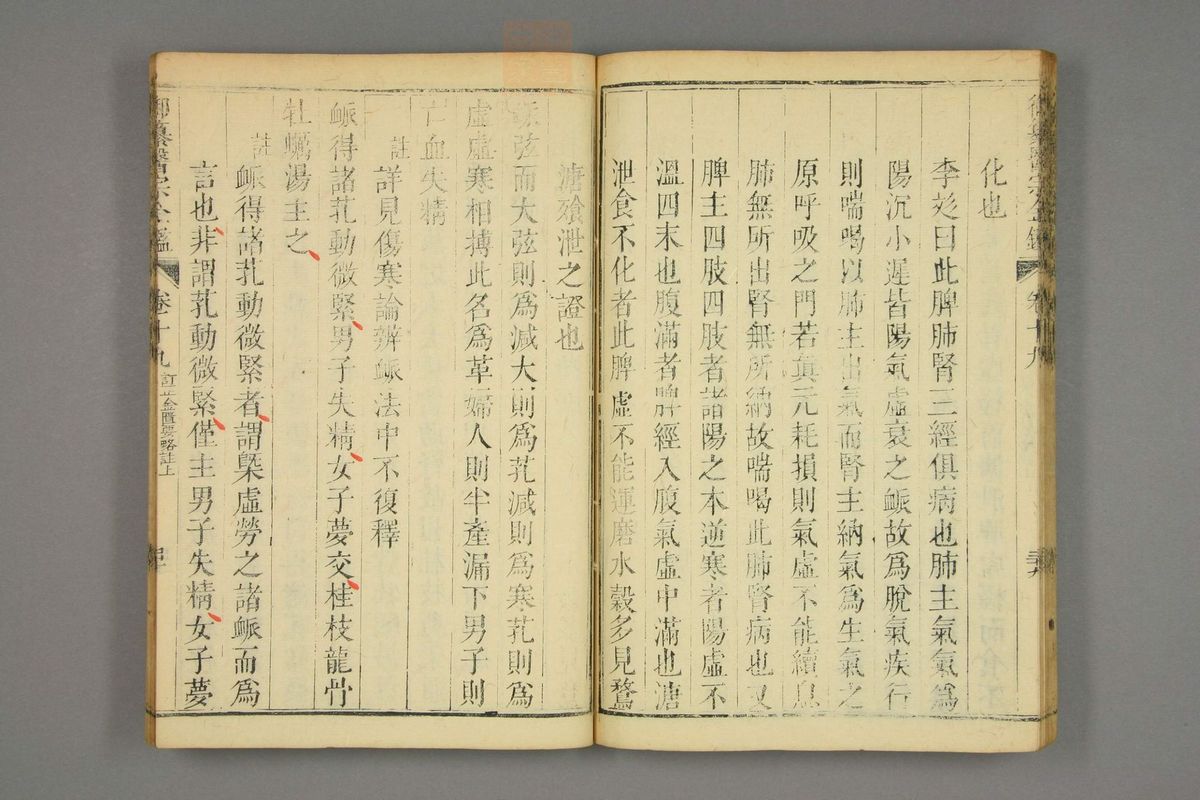 化也
李彣曰此脾肺腎三經俱病也肺主氣氣爲
陽沉小遲皆陽氣虛衰之衇故爲脫氣疾行
則喘喝以肺主出氣而腎主納氣爲生氣之
原呼吸之門若眞元耗損則氣虛不能續息
肺無所出腎無所納故喘喝此肺腎病也又
脾主四肢四肢者諸陽之本逆寒者陽虛不
溫四末也腹滿者脾經入腹氣虛中滿也溏
泄食不化者此脾虛不能運磨水穀多見鶩
溏飱泄之證也
衇弦而大弦則爲減大則爲芤減則爲寒芤則爲
虛虛寒相搏此名爲革婦人則半產漏下男子則
亡血失精
註
詳見傷寒論辨衇法中不復釋
衇得諸芤動微緊男子失精女子夢交桂枝龍骨
牡蠣湯主之
註
衇得諸芤動微緊者謂槩虛勞之諸衇而爲
言也非謂芤動微緊僅主男子失精女子夢
御纂醫宗金鑑 卷十九 訂正金匱要略註上